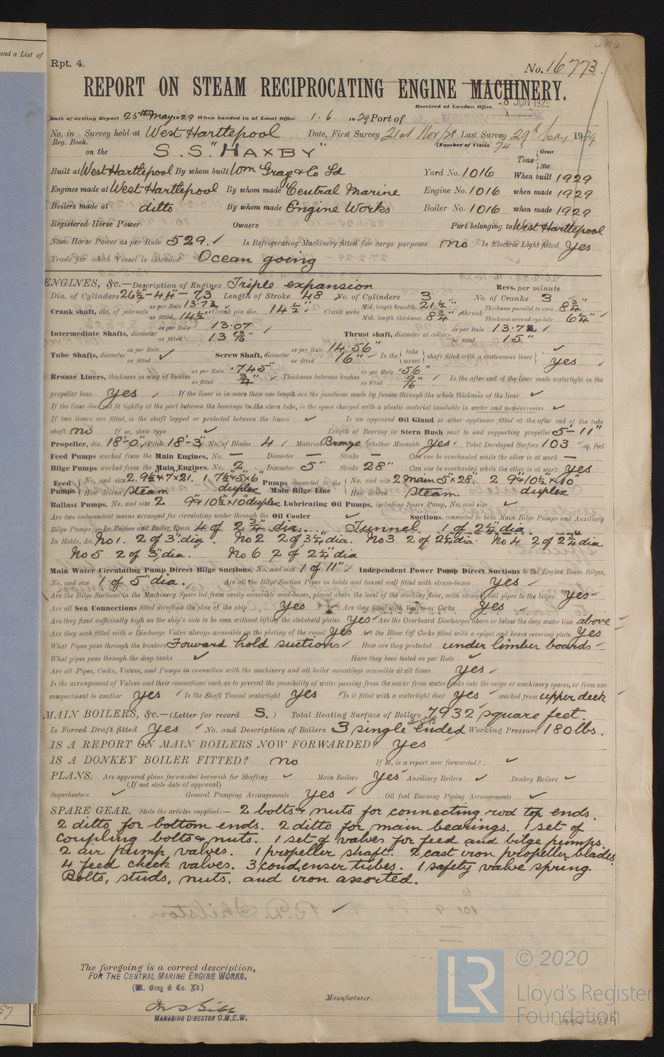 and a List of
Rpt. 4.
No. 16773.
REPORT ON STEAM RECIPROCATING ENGINE MACHINERY.
Received at London Office 8 JUN 1929
Date of writing Report 25th May 1929 When handed in at Local Office 1.6.1929 Port of
No. in Survey held at West Hartlepool Date, First Survey 21st Last Survey 29th May 1929
Reg. Book. (Number of Visits 74)
on the S.S "HAXBY" Tons Gross Net
Built at West Hartlepool By whom built Wm Gray & Co Ld Yard No. 1016 When built 1929
Engines made at West Hartlepool By whom made Central Marine Engine No. 1016 when made 1929
Boilers made at ditto By whom made Engine Works Boiler No. 1016 when made 1929
Registered Horse Power Owners Port belonging to West Hartlepool
Nom. Horse Power as per Rule 529. Is Refrigerating Machinery fitted for cargo purposes no Is Electric Light fitted Yes
Trade for which Vessel is intended Ocean going
ENGINES, &c.—Description of Engines Triple expansion Revs. per minute
Dia. of Cylinders 26½-44-73 Length of Stroke 48 No. of Cylinders 3 No. of Cranks 3
Crank shaft, dia. of journals as per Rule 13.72 as fitted 14½" Crank pin dia. 14½" Crank webs Mid. length breadth 21½" Mid. length thickness 8¾" shrunk Thickness parallel to axis 8¾" Thickness around eyehole 6¼"
Intermediate Shafts, diameter as per Rule 13.07 as fitted Thrust shaft, diameter at collars as per Rule 13.72 as fitted 15"
Tube Shafts, diameter as per Rule as fitted Screw Shaft, diameter as per Rule 14.56" as fitted 16" Is the tube screw shaft fitted with a continuous liner yes
Bronze Liners, thickness in way of bushes as per Rule .745" as fitted ¾" Thickness between bushes as per Rule .56" as fitted 9/16" Is the after end of the liner made watertight in the
propeller boss yes If the liner is in more than one length are the junctions made by fusion through the whole thickness of the liner
If the liner does not fit tightly at the part between the bearings in the stern tube, is the space charged with a plastic material insoluble in water and non-corrosive
If two liners are fitted, is the shaft lapped or protected between the liners Is an approved Oil Gland or other appliance fitted at the after end of the tube
shaft no If so, state type Length of Bearing in Stern Bush next to and supporting propeller 5-11"
Propeller, dia. 18'-0" Pitch 18'-3" No. of Blades 4 Material Bronze whether Moveable yes Total Developed Surface 103 sq. feet
Feed Pumps worked from the Main Engines, No. — Diameter — Stroke — Can one be overhauled while the other is at work —
Bilge Pumps worked from the Main Engines, No. 2 Diameter 5" Stroke 28" Can one be overhauled while the other is at work yes
Feed Pumps No. and size 2. 9½x7x21. 1 7½x5x6" duplex How driven Steam Pumps connected to the Main Bilge Line No. and size 2 main 5x28. 2 9"x10½"x10" duplex How driven Steam
Ballast Pumps, No. and size 2 9"x10½"x10" duplex Lubricating Oil Pumps, including Spare Pump, No. and size
Are two independent means arranged for circulating water through the Oil Cooler Suctions, connected to both Main Bilge Pumps and Auxiliary
Bilge Pumps:—In Engine and Boiler Room 4 of 2¾" dia. Tunnel 1 of 2½" dia
In Holds, &c. No 1. 2 of 3" dia. No 2 2 of 3½" dia. No 3 2 of 2½" dia No 4 2 of 2¾" dia
No 5 2 of 3" dia. No 6 2 of 2½" dia
Main Water Circulating Pump Direct Bilge Suctions, No. and size 1 of 11" Independent Power Pump Direct Suctions to the Engine Room Bilges,
No. and size 1 of 5" dia. Are all the Bilge Suction Pipes in holds and tunnel well fitted with strum-boxes yes
Are the Bilge Suctions in the Machinery Space led from easily accessible mud-boxes, placed above the level of the working floor, with straight tail pipes to the bilges yes
Are all Sea Connections fitted direct on the skin of the ship yes Are they fitted with Valves or Cocks yes
Are they fixed sufficiently high on the ship's side to be seen without lifting the stokehold plates yes Are the Overboard Discharges above or below the deep water line above
Are they each fitted with a Discharge Valve always accessible on the plating of the vessel yes Are the Blow Off Cocks fitted with a spigot and brass covering plate yes
What Pipes pass through the bunkers Forward hold suctions How are they protected under limber boards
What pipes pass through the deep tanks Have they been tested as per Rule
Are all Pipes, Cocks, Valves, and Pumps in connection with the machinery and all boiler mountings accessible at all times yes
Is the arrangement of Valves and their connections such as to prevent the possibility of water passing from the sea or from water tanks into the cargo or machinery spaces, or from one
compartment to another yes Is the Shaft Tunnel watertight yes Is it fitted with a watertight door yes worked from upper deck
MAIN BOILERS, &c.—(Letter for record S.) Total Heating Surface of Boilers 7932 square feet.
Is Forced Draft fitted yes No. and Description of Boilers 3 single ended Working Pressure 180 lbs.
IS A REPORT ON MAIN BOILERS NOW FORWARDED? yes
IS A DONKEY BOILER FITTED? no If so, is a report now forwarded?
PLANS. Are approved plans forwarded herewith for Shafting Main Boilers yes Auxiliary Boilers Donkey Boilers
(If not state date of approval)
Superheaters General Pumping Arrangements yes Oil fuel Burning Piping Arrangements
SPARE GEAR. State the articles supplied:— 2 bolts & nuts for connecting rod top ends.
2 ditto for bottom ends. 2 ditto for main bearings. 1 set of
coupling bolts & nuts. 1 set of valves for feed and bilge pumps.
2 air pump valves. 1 propeller shaft. 2 cast iron propeller blades.
4 feed check valves. 3 condenser tubes. 1 safety valve spring.
Bolts, studs, nuts, and iron assorted.
The foregoing is a correct description,
FOR THE CENTRAL MARINE ENGINE WORKS.
(Wm. Gray & Co. Ld.)
MANAGING DIRECTOR C.M.E.W.
Manufacturer.
LR
© 2020
Lloyd's Register
Foundation